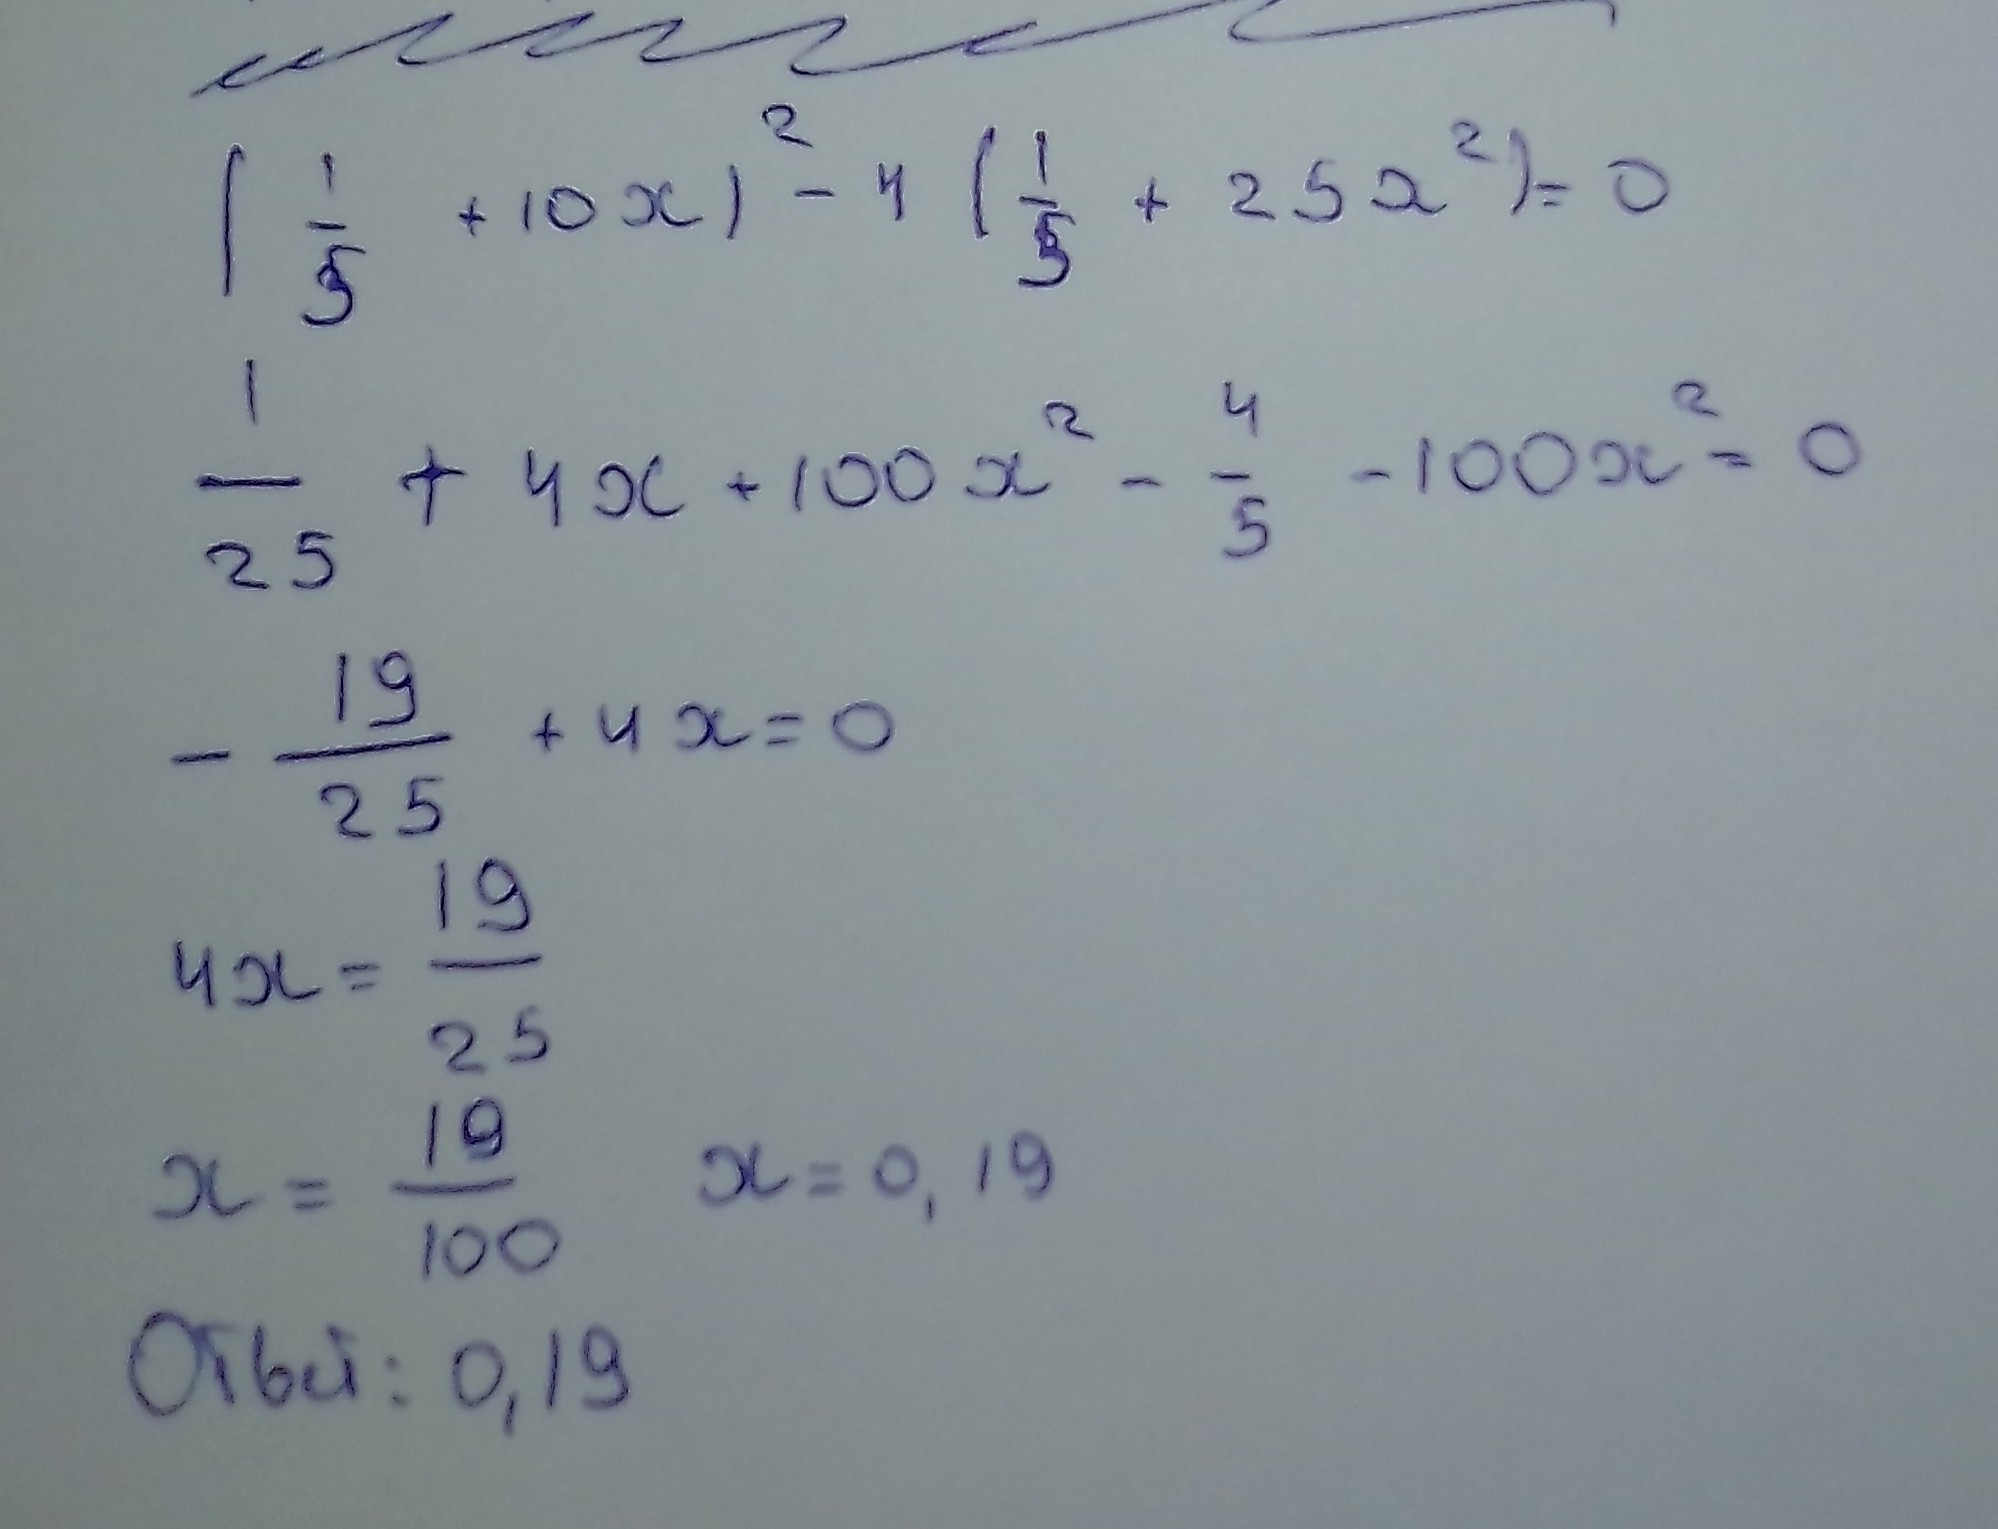 (1/5 + 10x)² - 4 (1/5 + 25x²) = 0
1/25 + 4x + 100x² - 4/5 - 100x² = 0
- 19/25 + 4x = 0
4x = 19/25
x = 19/100 x = 0,19
Ответ: 0,19